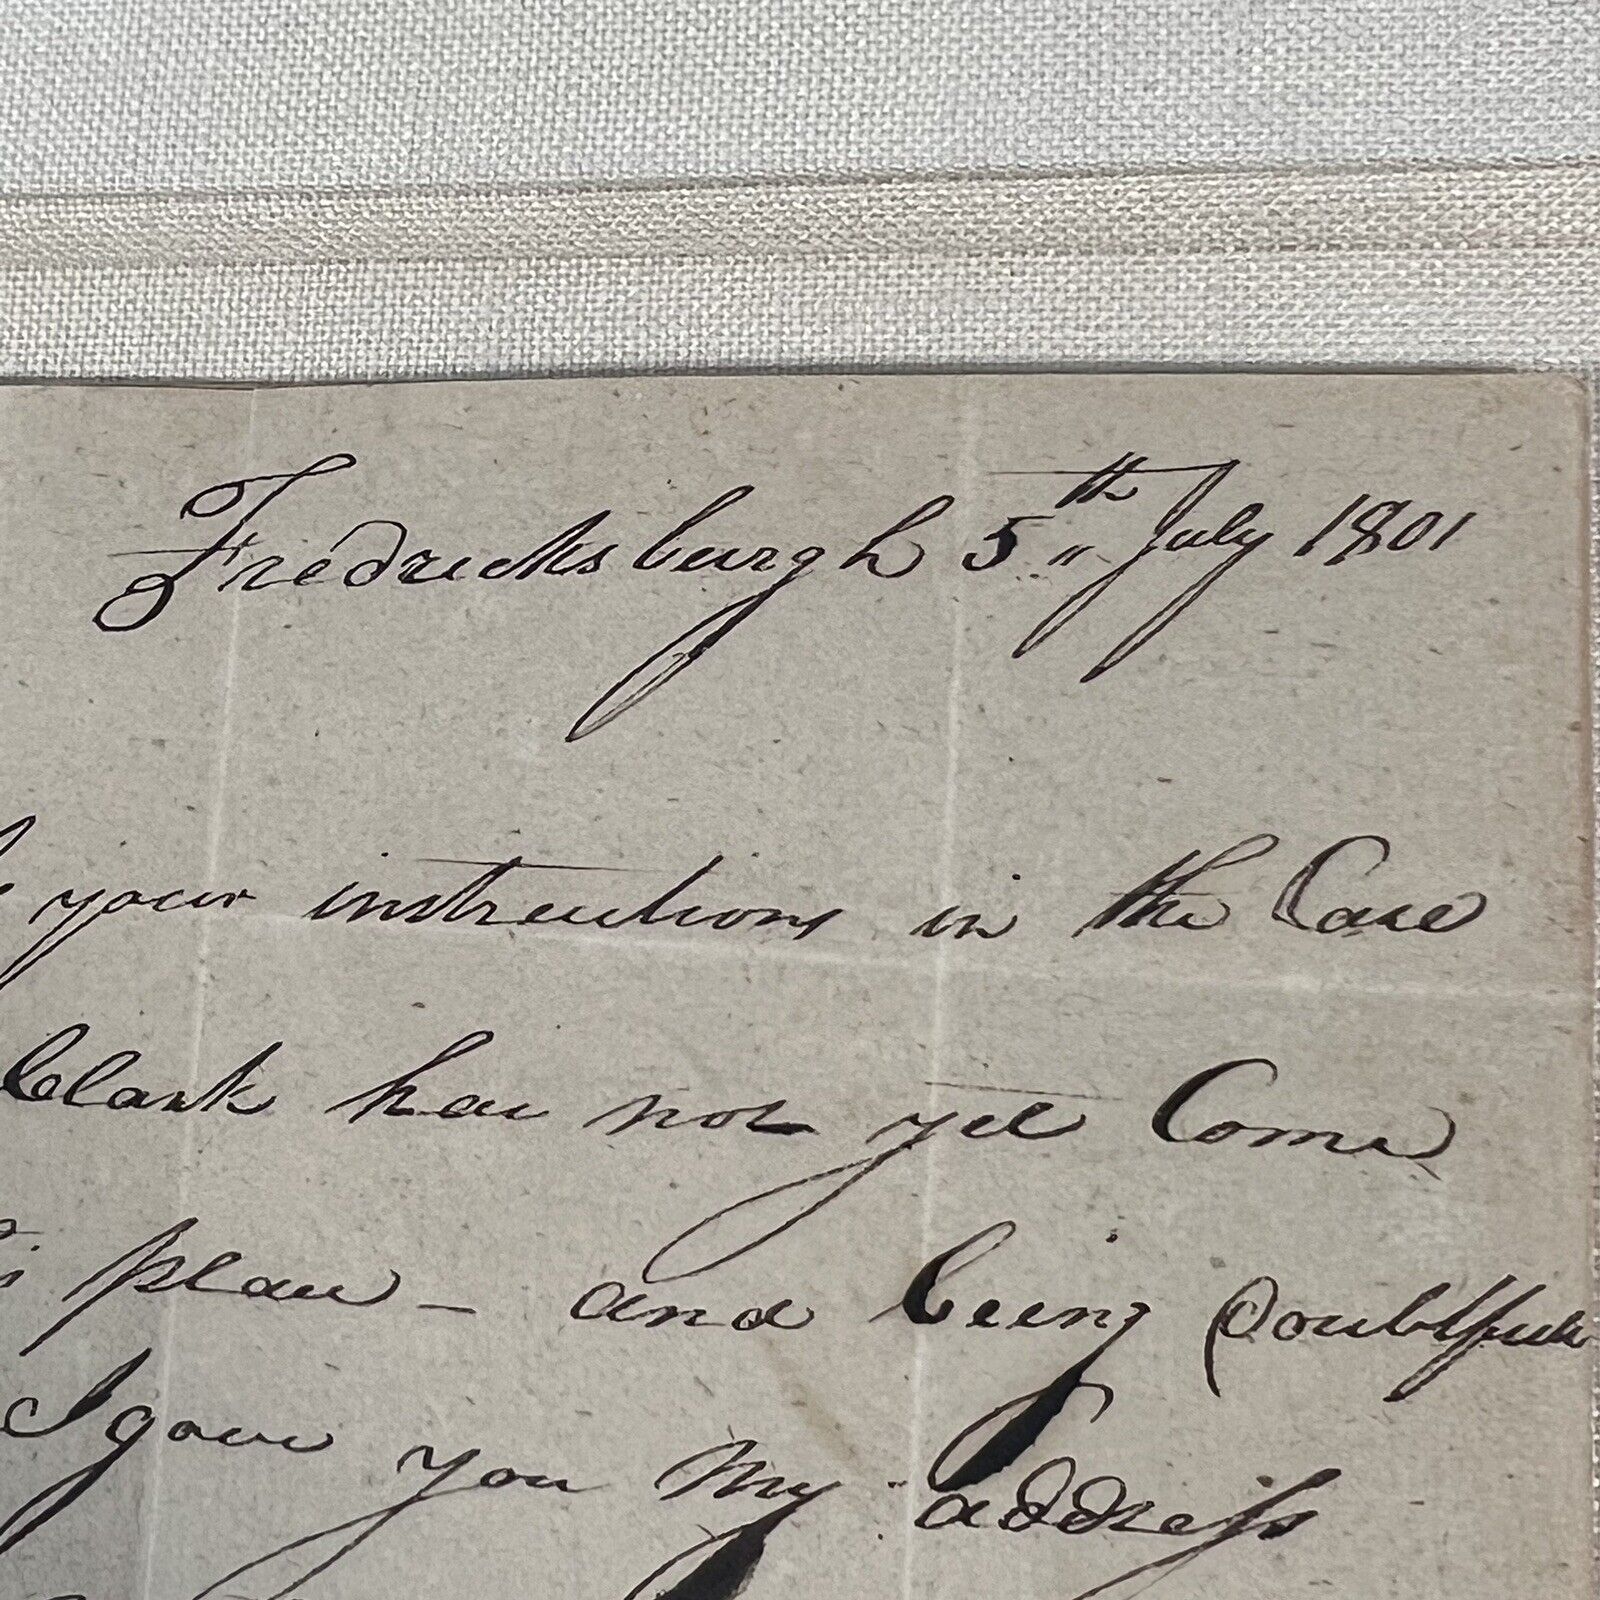 Fredricksburgh 5th July 1801
your instructions in the Case
Clark has not yet Come
plan - and being doubtful
I gave you my address